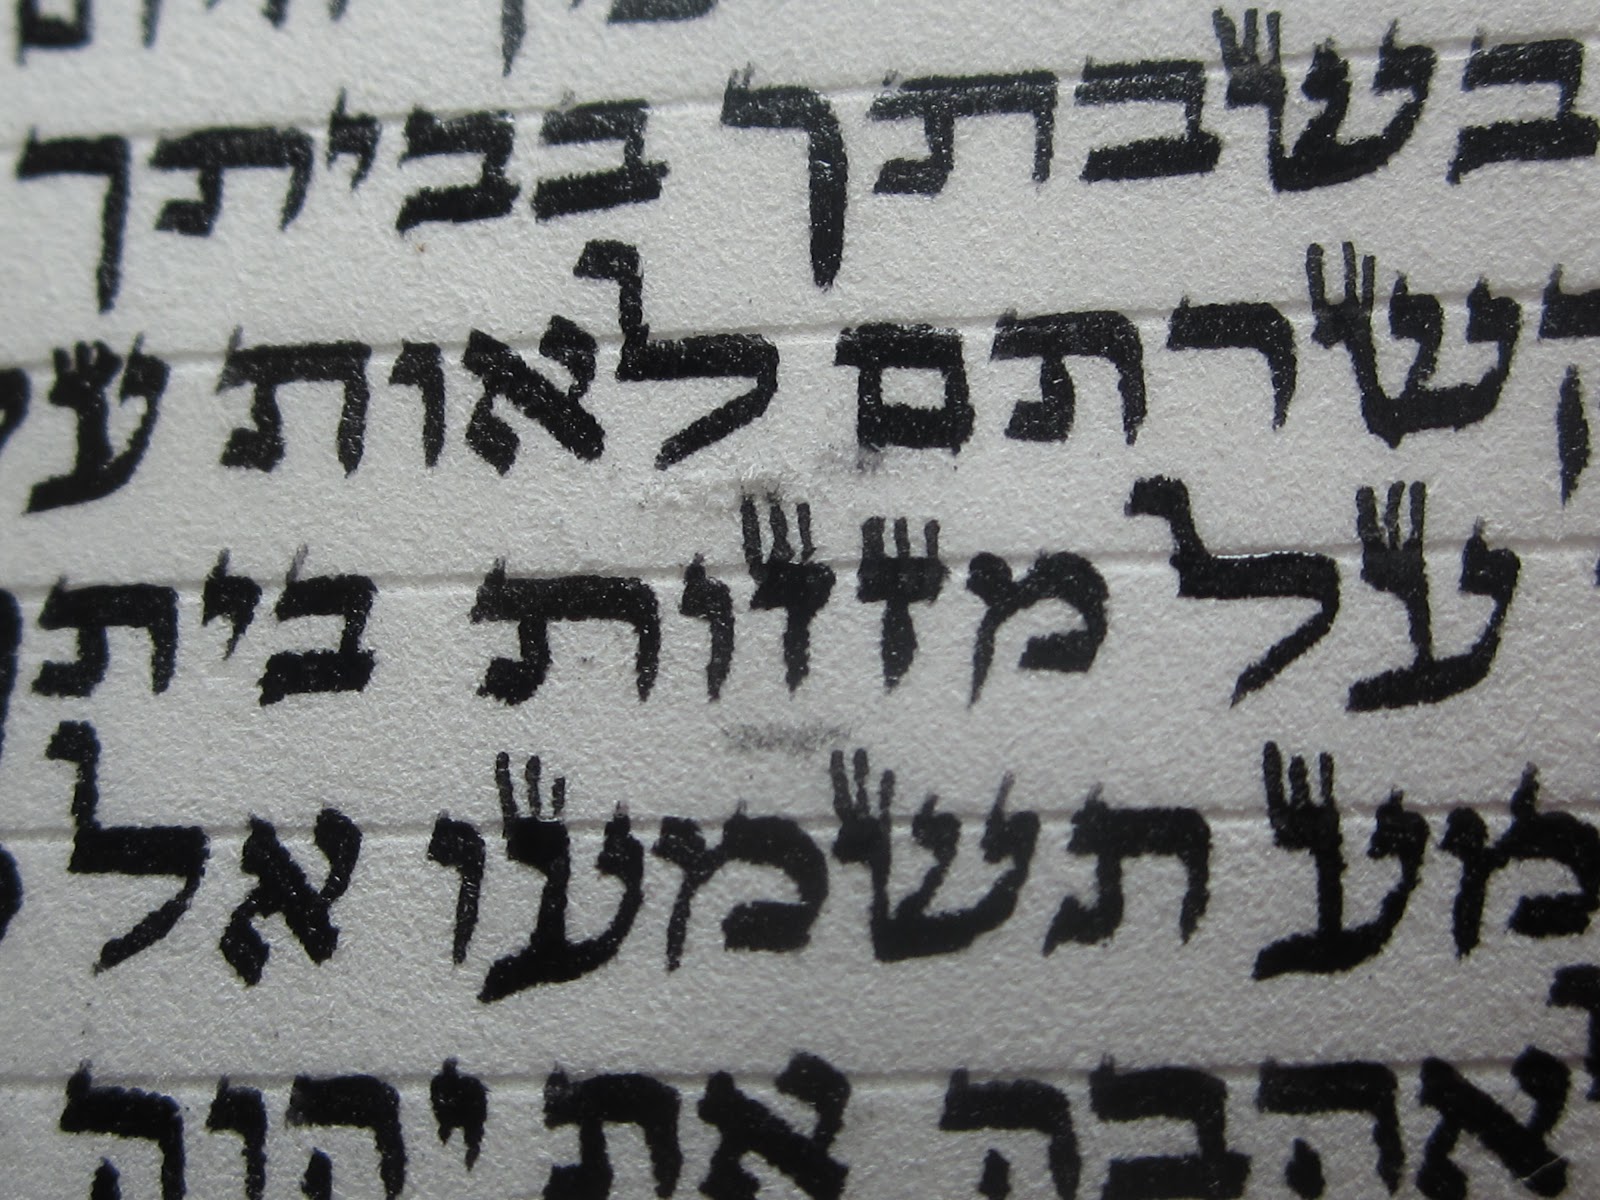 בשבתך בביתך
קשרתם לאות ע
על מזזות בית
מע תשמעו אל
אהבה את יהוה